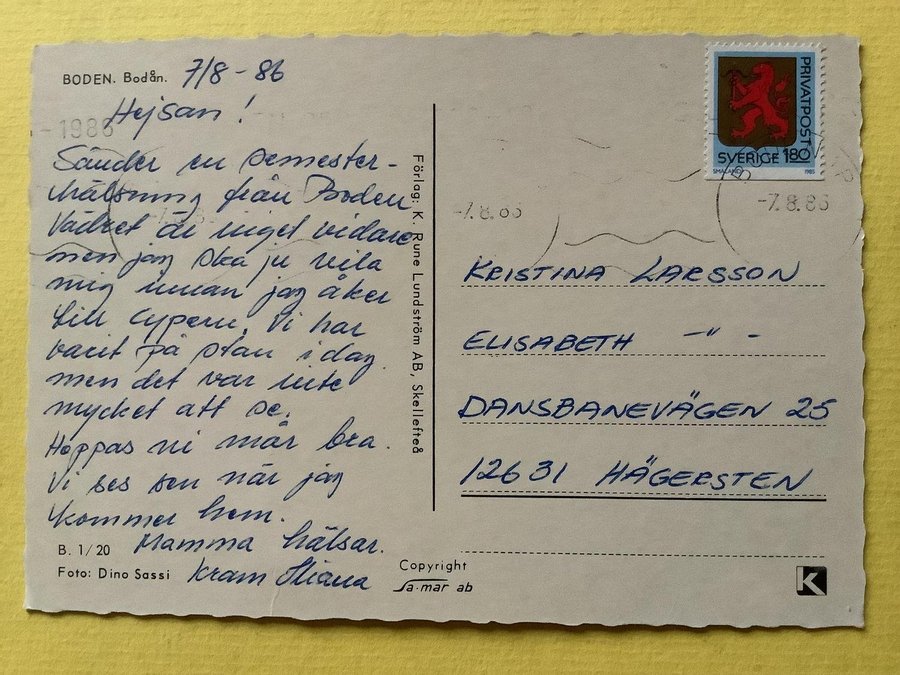 BODEN. Bodån.
7/8-86
Hejsan!
-1986
Sänder en semester-
hälsning från Boden
Vädret är inget vidare
men jag ska ju vila
mig innan jag åker
till Cypern. Vi har
varit på stan idag
men det var inte
mycket att se.
Hoppas ni mår bra.
Vi ses sen när jag
kommer hem.
Mamma hälsar.
Kram
B. 1/20
Foto: Dino Sassi
Förlag: K. Rune Lundström AB, Skellefteå
Copyright
Sa-mar ab
PRIVATPOST
SVERIGE 180
SMÅLAND 1985
-7.8.86
-7.8.86
KRISTINA LARSSON
ELISABETH -"-
DANSBANEVÄGEN 25
126 31 HÄGERSTEN
K